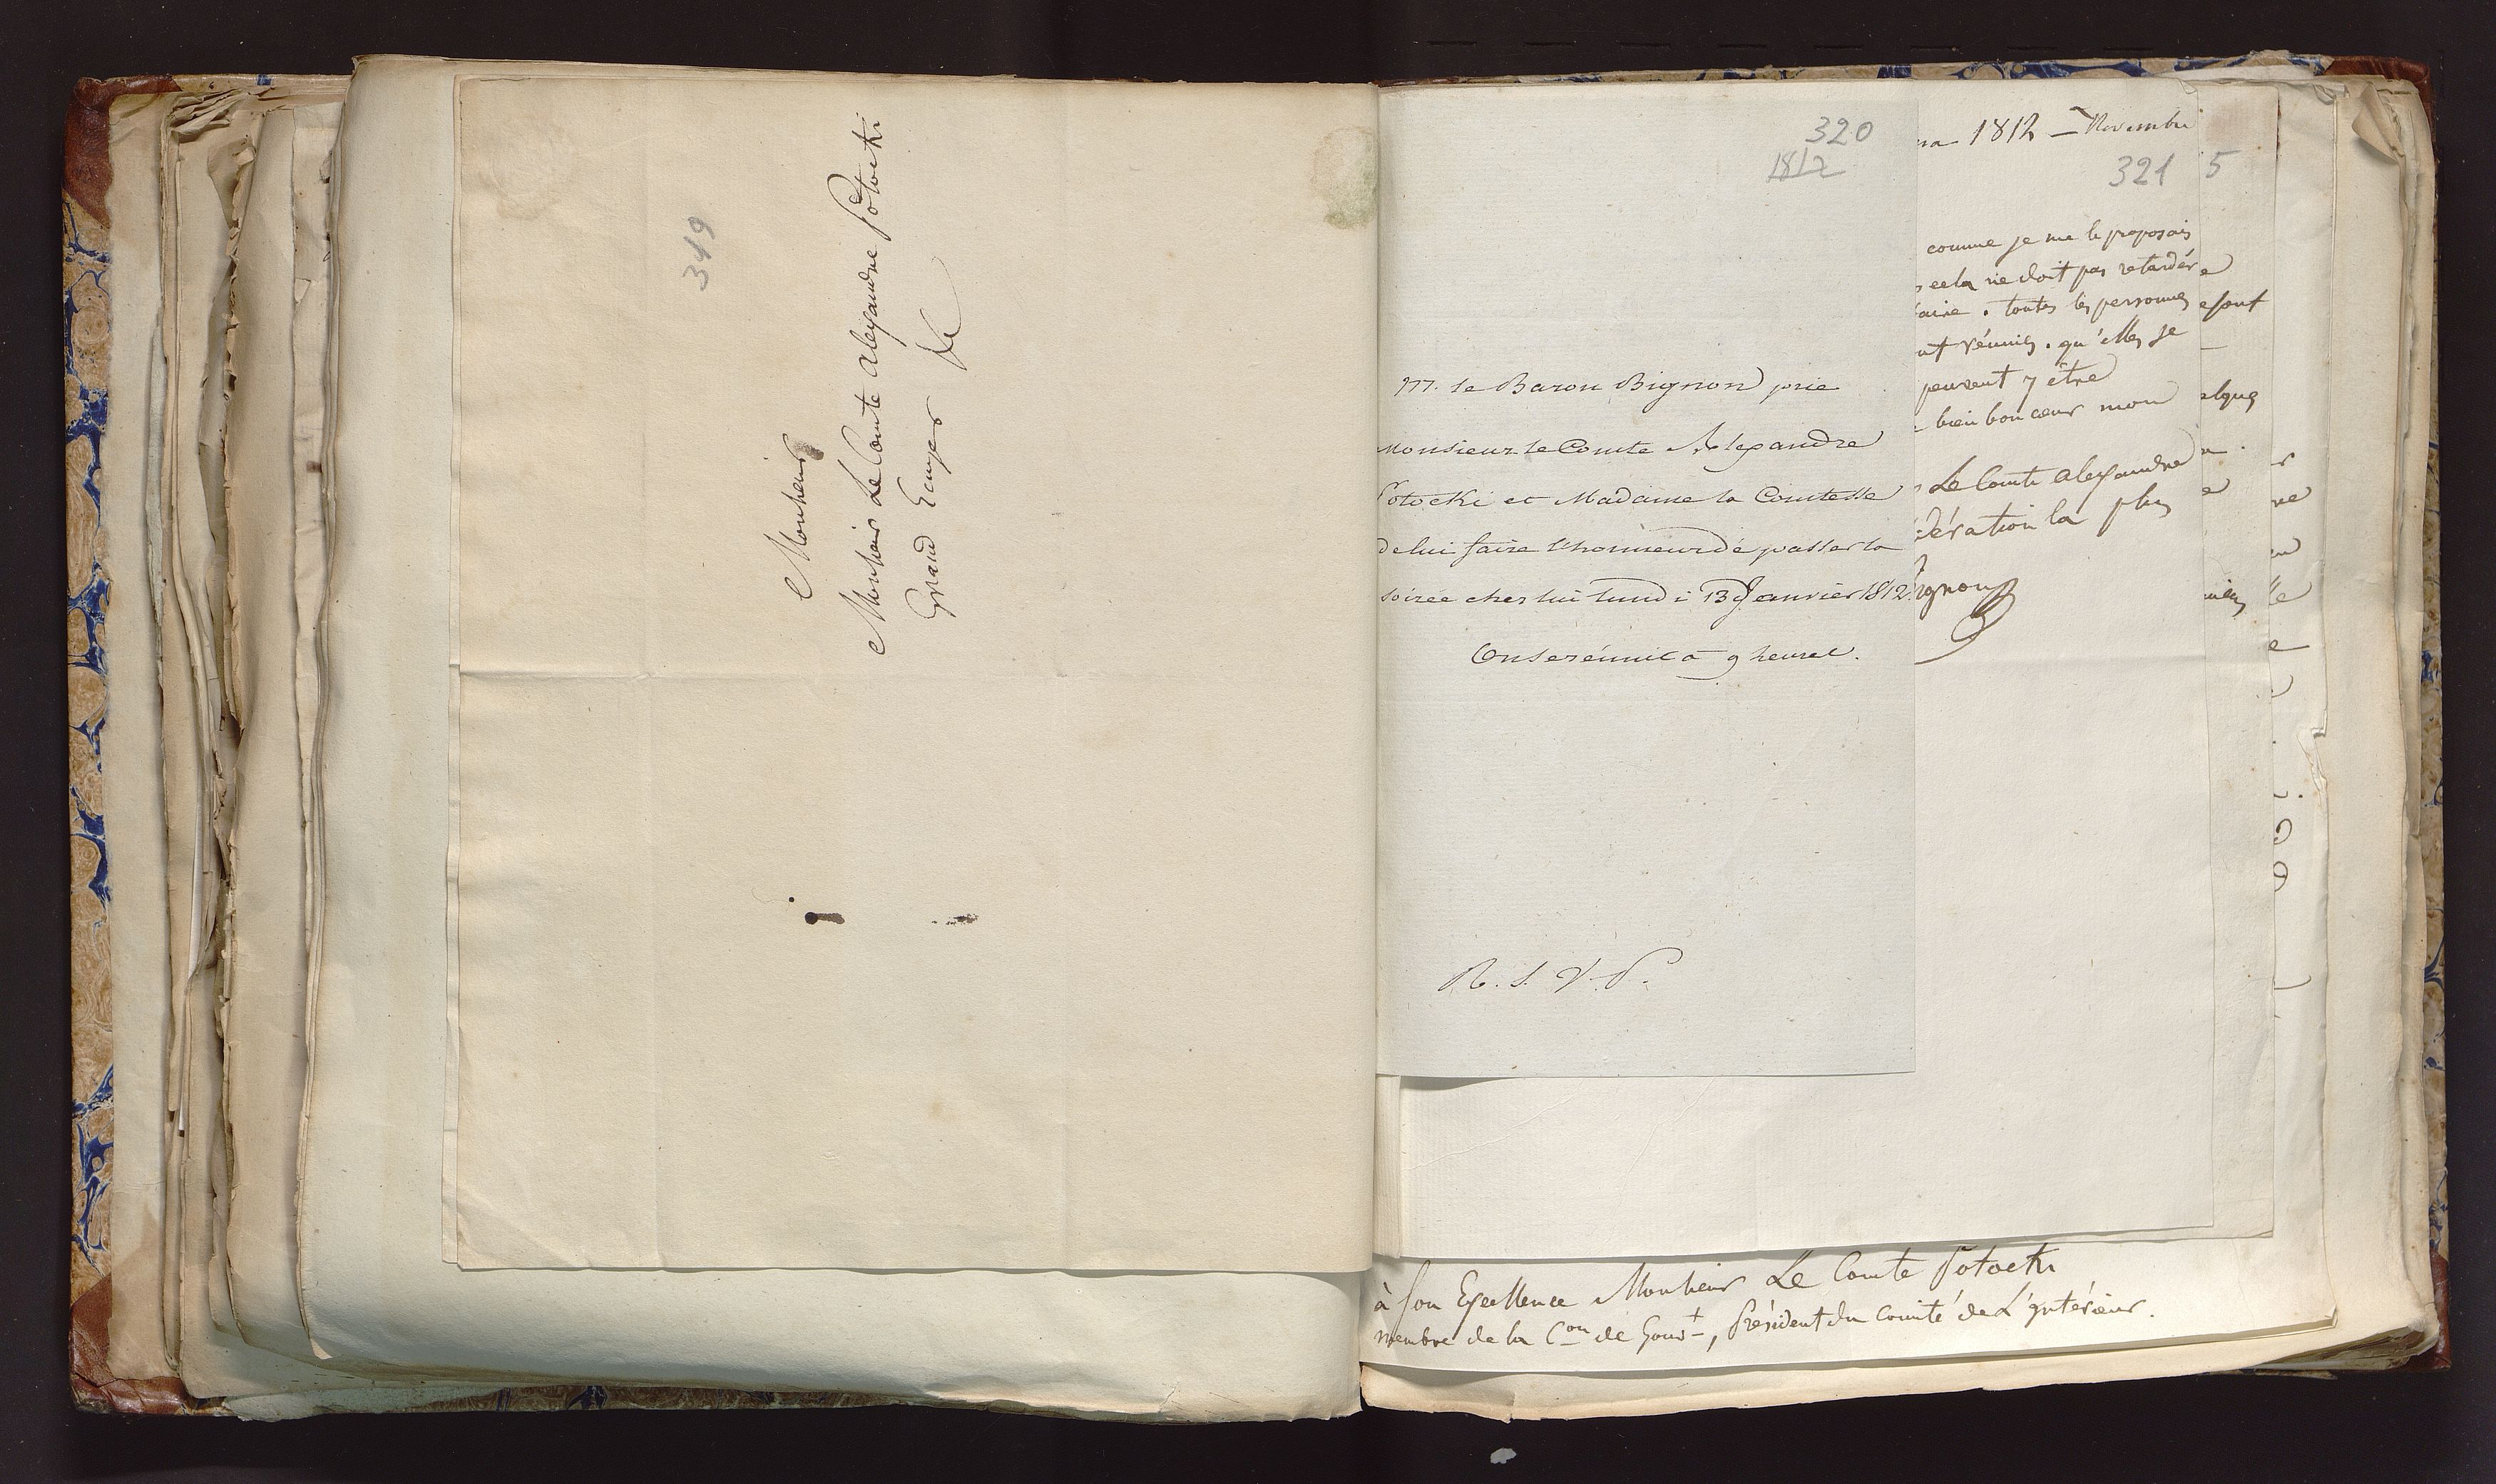 319
Monsieur
Monsieur Le Comte Alexandre Potocki
Grand Ecuyer &c
320
1812
M. le Baron Bignon prie
Monsieur le Comte Alexandre
Potocki et Madame la Comtesse
de lui faire l'honneur de passer la
soirée chez lui lundi 13 Janvier 1812.
On se réunit à 9 heures.
R. S. V. P.
na 1812 — Novembre
321
comme je me le proposais
s cela ne doit pas retarder
faire . toutes les personnes
nt réunies . qu'elles se
peuvent y être
bien bon cœur mon
Le Comte Alexandre
dération la plus
ignon
5
e
esont
elques
e
ne
le
e
à Son Excellence Monsieur Le Comte Potocki
membre de la Con de Gouvt, Président du Comité de L'Intérieur.